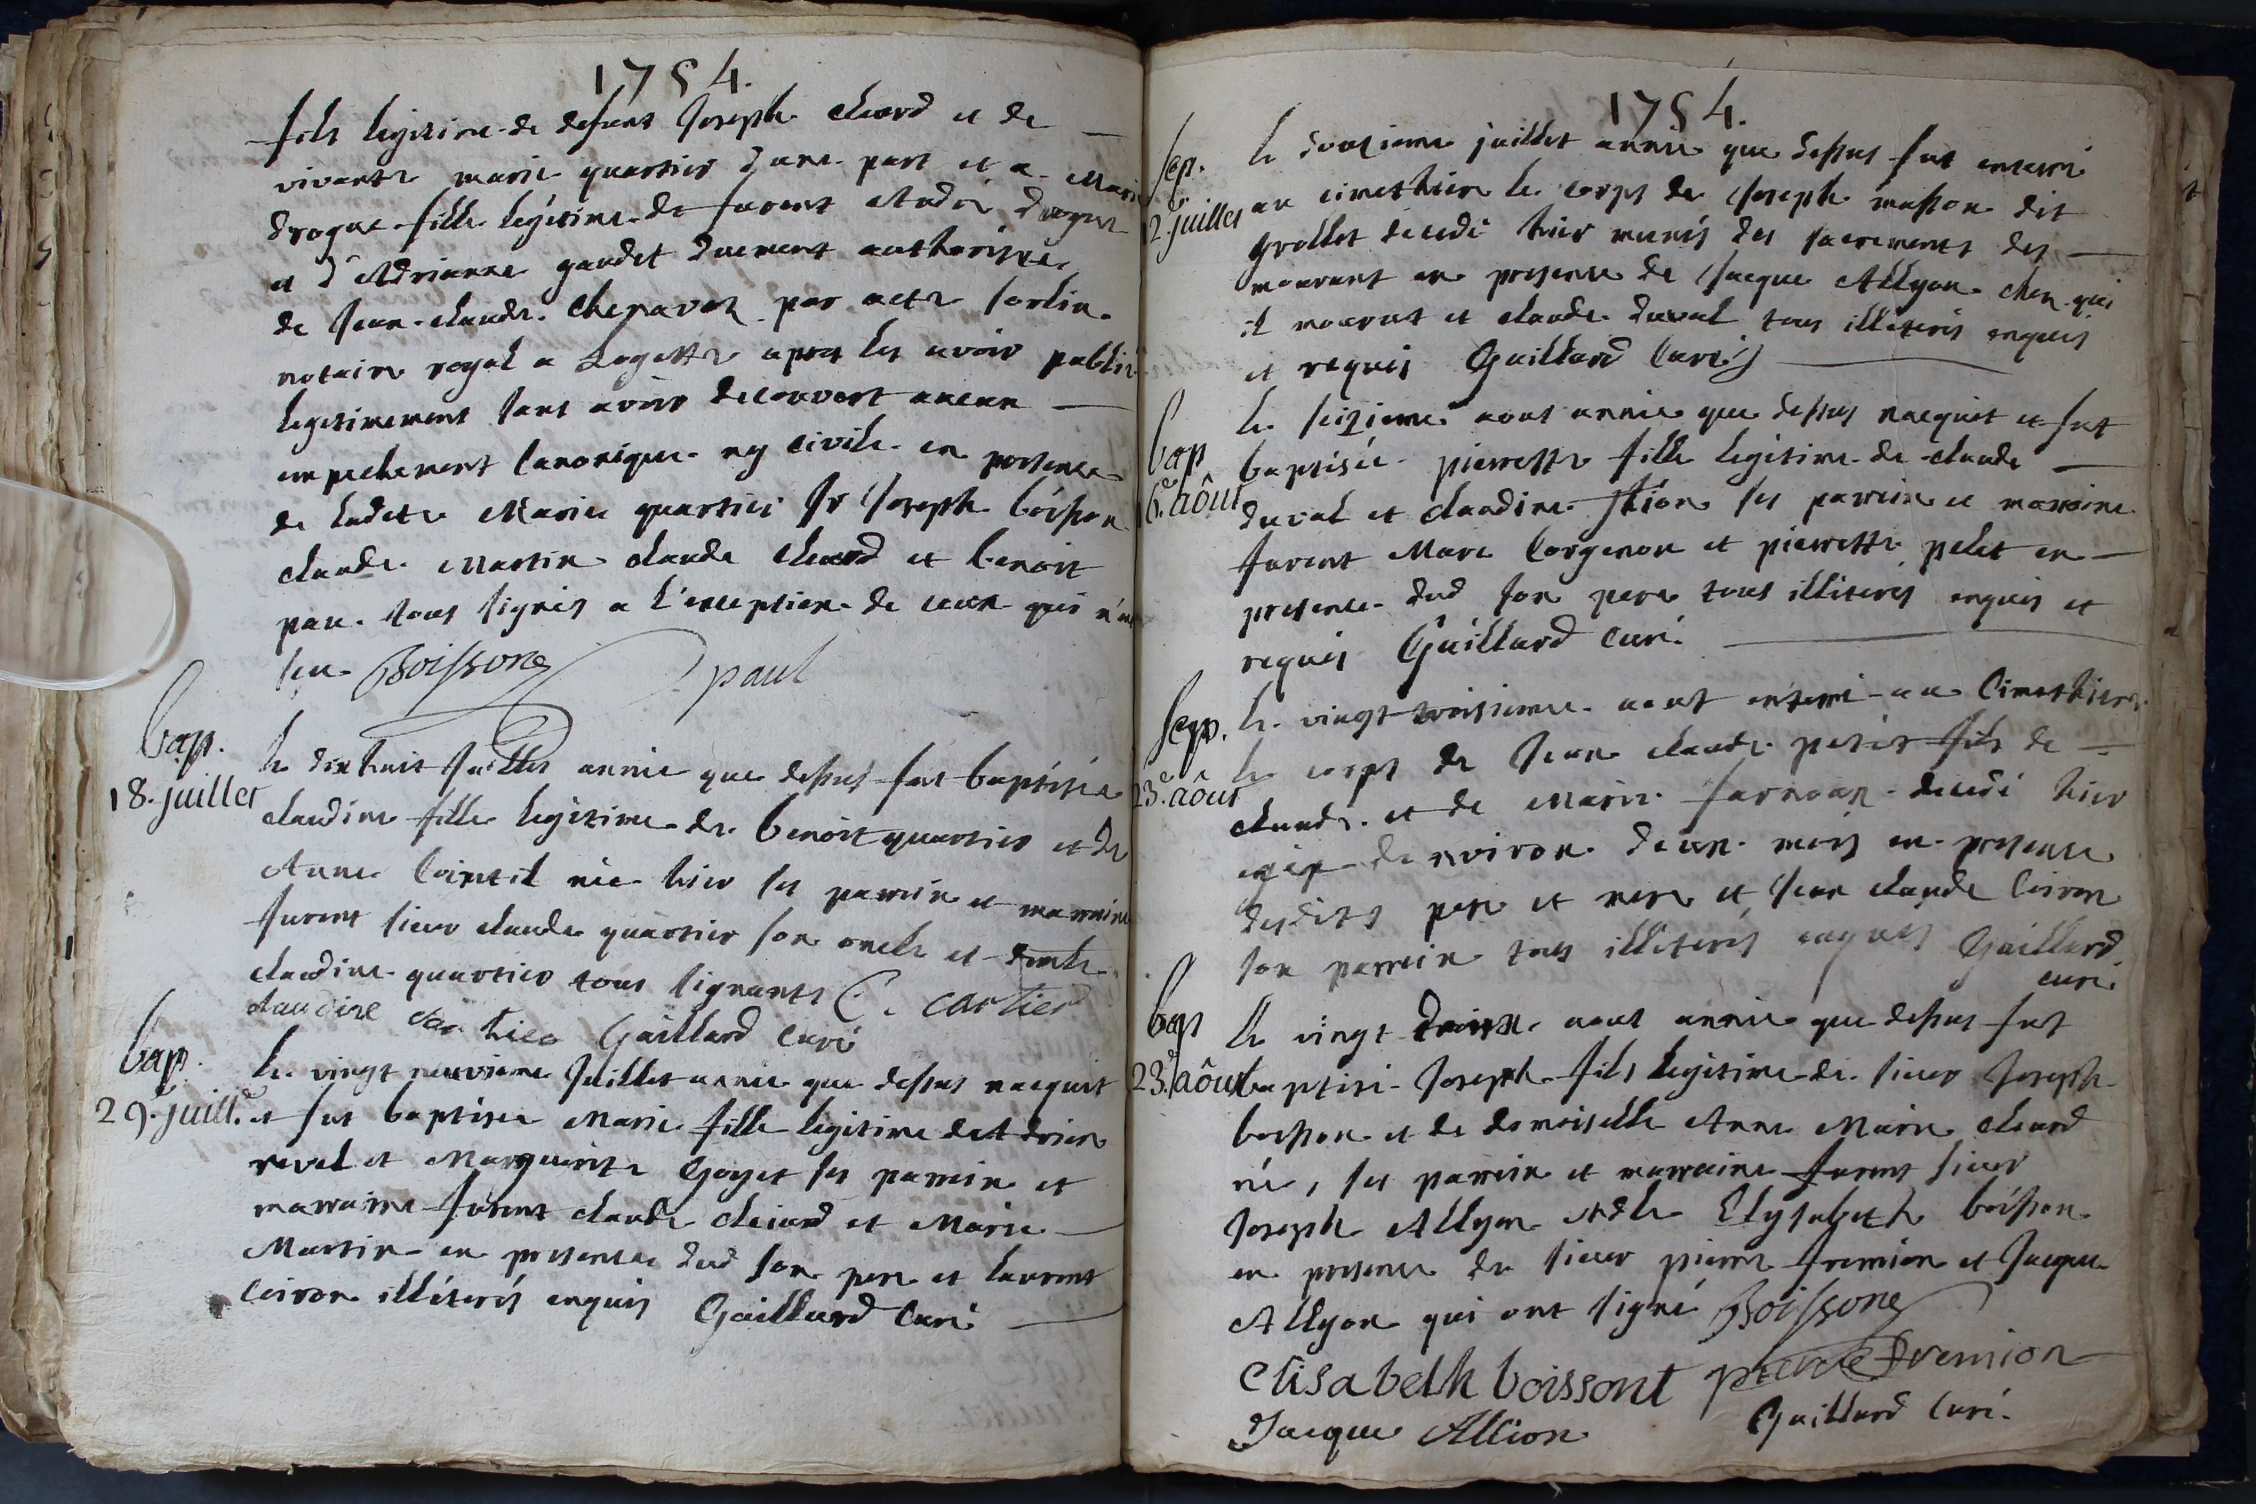 1754.
fils legitime de defunt Joseph cheard et de
vivante marie quartier d'une part et a Marie
drogue fille legitime de furent André drogue
et d'Adrianne gaudet duement authorisée
de Jean claude Chenavaz par acte sorlin
notaire royal a Lagette apres les avoir publié
legitimement sans avoir decouvert aucun
empechement Canonique ny civile en presence
de ladite Marie quartier Sr Joseph boisson
claude Martin claude cheard et benoit
pau tous signés a l'exception de ceux qui n'ont
seu Boissong paul
bap.
18. juillet
le dix huit Juillet année que dessus fut baptisée
claudine fille legitime de benoit quartier et de
Anne Cointet née hier ses parrein et marraine
furent sieur claude quartier son oncle et dmlle
claudine quartier tous signants C. cartier
claudine cartier Gaillard curé
bap.
29. juillt.
le vingt neuvieme Juillet année que dessus nacquit
et fut baptisée Marie fille legitime de Adrien
revel et Marguerite Goyet ses parrein et
marraine furent claude cheard et Marie
Martin en presence dud son pere et laurent
Coiron illiterés enquis Gaillard Curé
1754.
sep.
12. juillet
le douzieme juillet année que dessus fut enterré
au cimethiere le corps de Joseph musson dit
grollet decedé hier munis des sacrements des
mourant en presence de Jacque Allyon chez qui
il mourut et claude duval tous illiterés enquis
et requis Gaillard Curé
bap
16.e aôut
le seizieme aout année que dessus nacquit et fut
baptisée pierrette fille legitime de claude
duval et claudine ses parrein et marraine
furent Marc Corgenon et pierrette pelet en
presence dud son pere tous illiterés enquis et
requis Gaillard curé.
sepp.
23.e aôut
le vingt-troisieme aout enterré au Cimethiere
le corps de Jean claude petit fils de
claude et de Marie decedé hier
agé d'environ deux mois en presence
desdits pere et mere et Jean claude Coiron
son parrein tous illiterés enquis Gaillard
curé.
bap
23.e aôut
le vingt troisie. aout année que dessus fut
baptisé Joseph fils legitime de sieur Joseph
boisson et de demoiselle Anne Marie cheard
né, ses parrein et marraine furent sieur
Joseph Allyon et dlle Elysabeth boisson
en presence de sieur pierre fremion et Jacque
Allyon qui ont signé Boissong
elisabelh boissont pierre fremion
Jacque Allion Gaillard Curé.